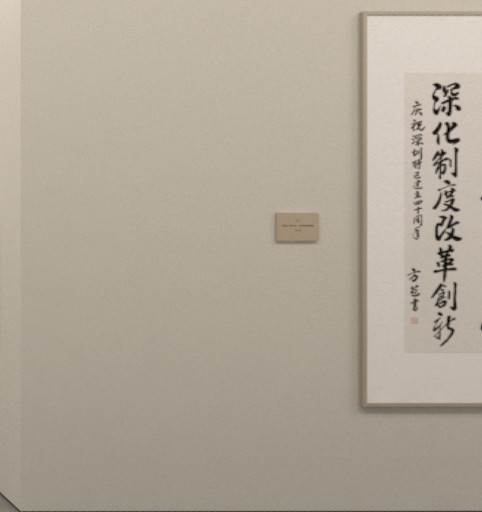 深化制度改革創新
庆祝深圳特区建立四十周年
方苞書